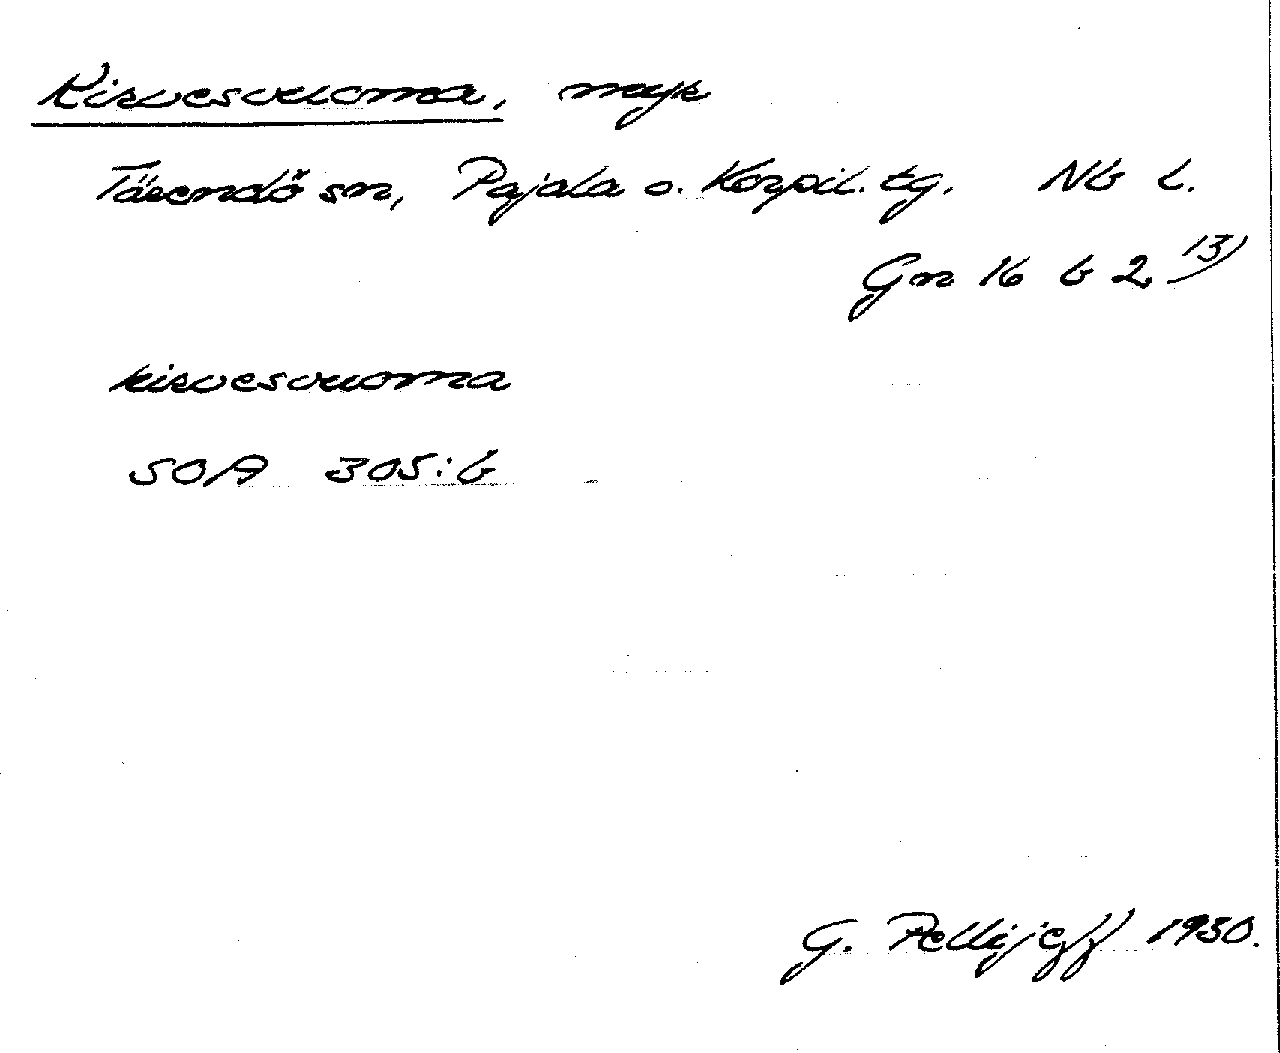 Kirvesvuoma, myr
Tärendö sn, Pajala o. Korpil. tg. Nb l.
Gn 16 b 2 13)
kirvesvuoma
SOA 305:b
G. Pellijeff 1930.